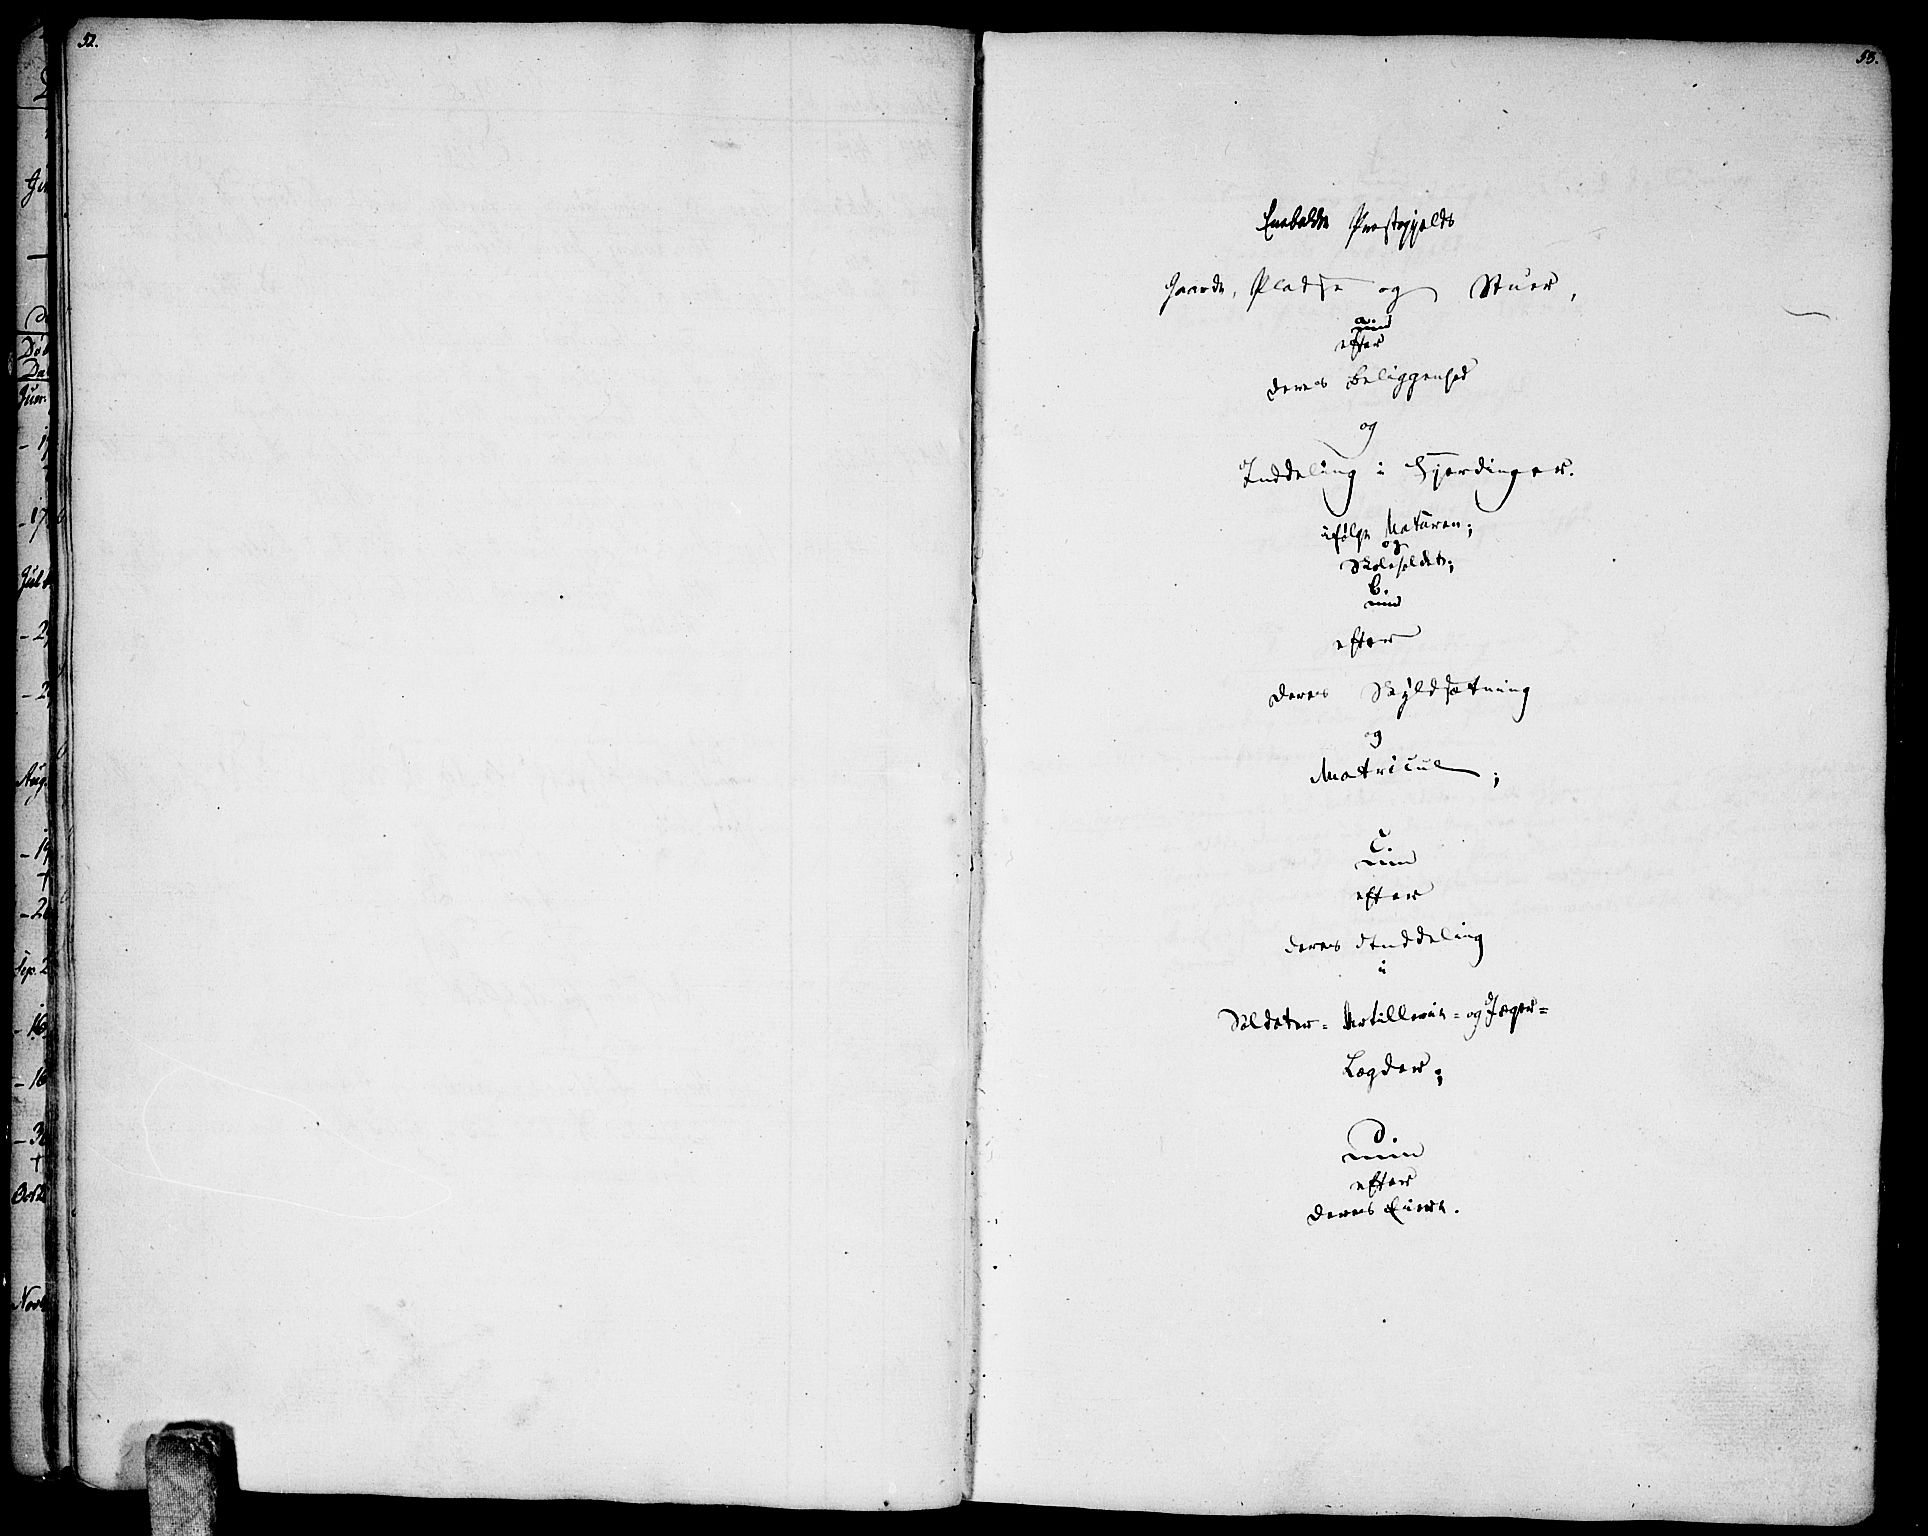 52.
53.
Enebakks Præstegjelds
Gaarde, Pladse og Stuer,
a.
efter
deres Beliggenhed
og
Inddeling i Fjerdinger.
ifølge Naturen;
og
Skoleholdet;
b.
efter
deres Skyldsætning
og
Matricul;
c.
efter
deres Inddeling
i
Soldater- Artillerie- og Jæger-
Lægder;
d.
efter
deres Eiere.